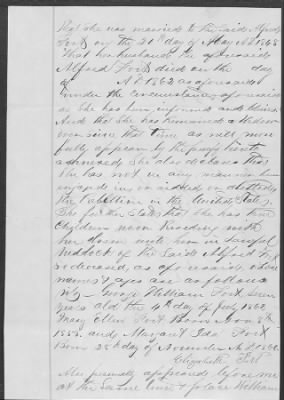 that she was married to the said Alfred
Fort on the 31st day of May AD 1853
That her husband the aforesaid
Alfred Fort died on the day
of A.D. 1862 as aforesaid
under the circumstances aforesaid
as she has been informed and believes
And that She has remained a widow
ever since that time as will more
fully appear by the proofs hereto
annexed She also declares that
She has not in any manner been
engaged in or aided or abetted
the Rebellion in the United States,
She further States that she has three
Children now residing with
her
wedlock of the Said Alfred Fort
deceased, as aforesaid, whose
names & ages are as follows
viz George William Fort, Seven
years old the day of 1862,
Mary Ellen Fort Born Nov 8th
and Margaret Ida Fort
Born 28th day of November A.D. 1860.
Elizabeth Fort
Also personally appeared before me
at the Same time & place William